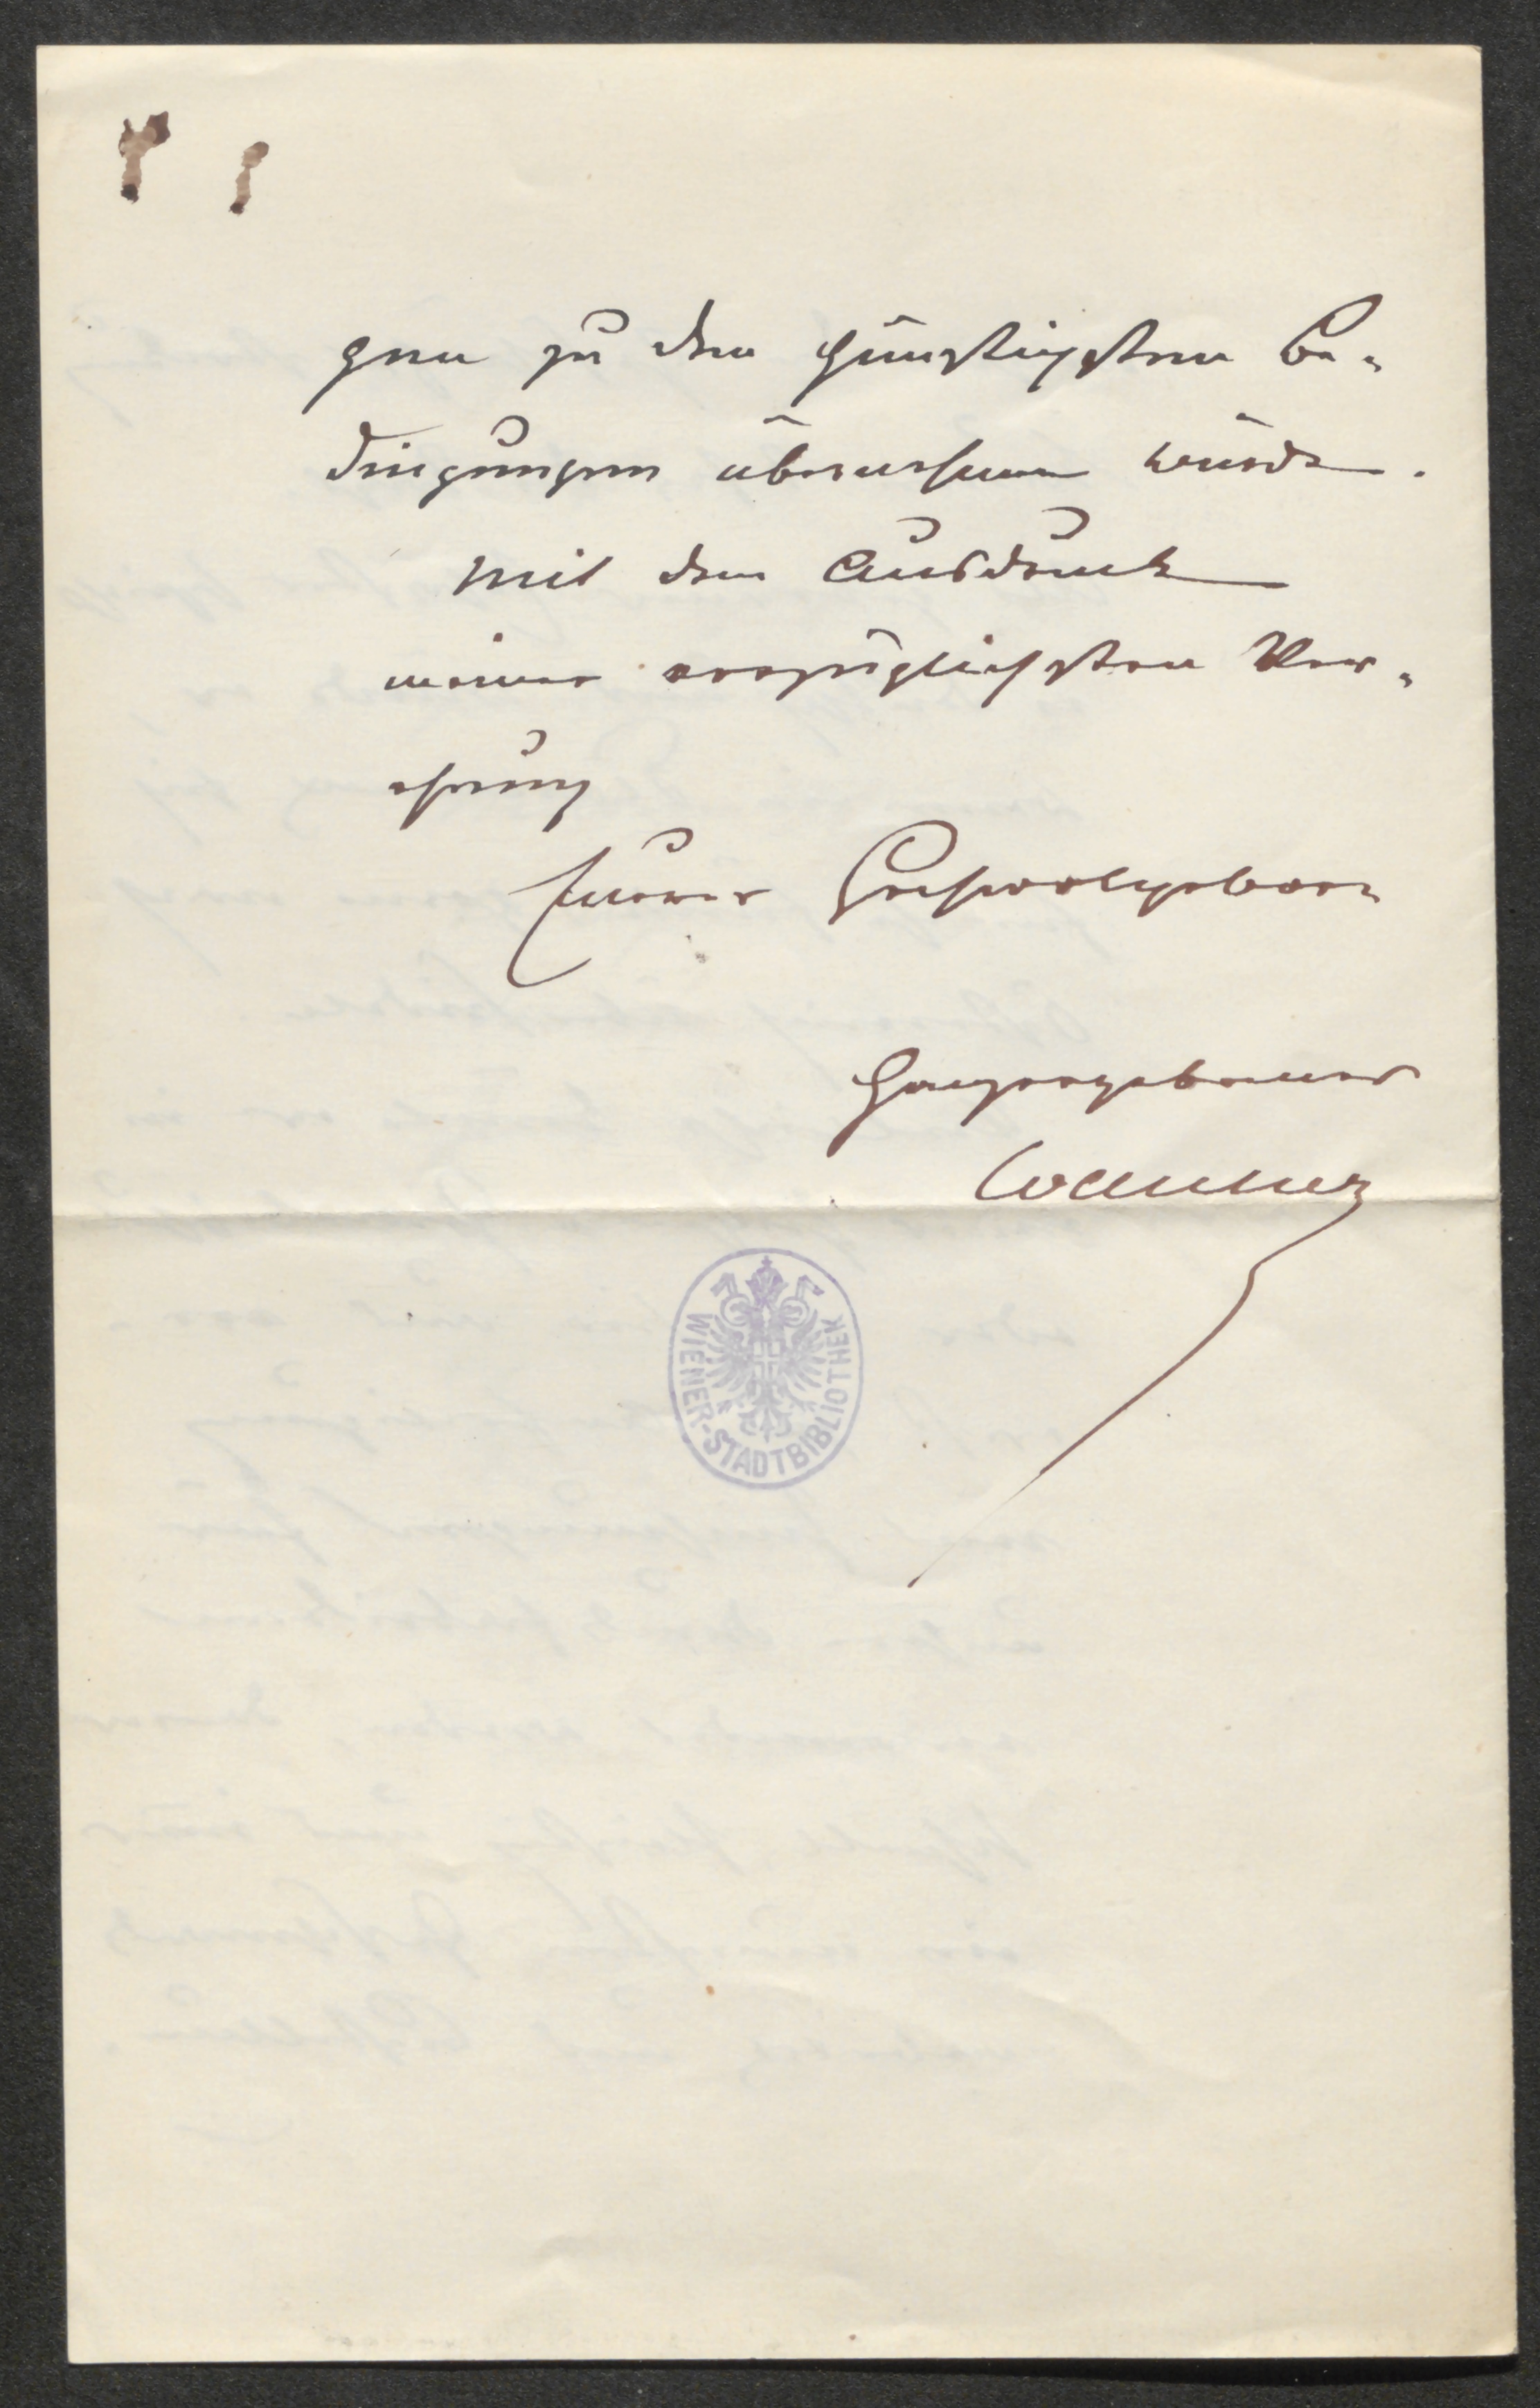 gen zu den günstigsten Be-
dingungen übernehmen würde.
Mit dem Ausdruck
meiner vorzüglichsten Ver-
ehrung
Eurer Hochwolgeboren
ganzergebener
WIENER-STADTBIBLIOTHEK